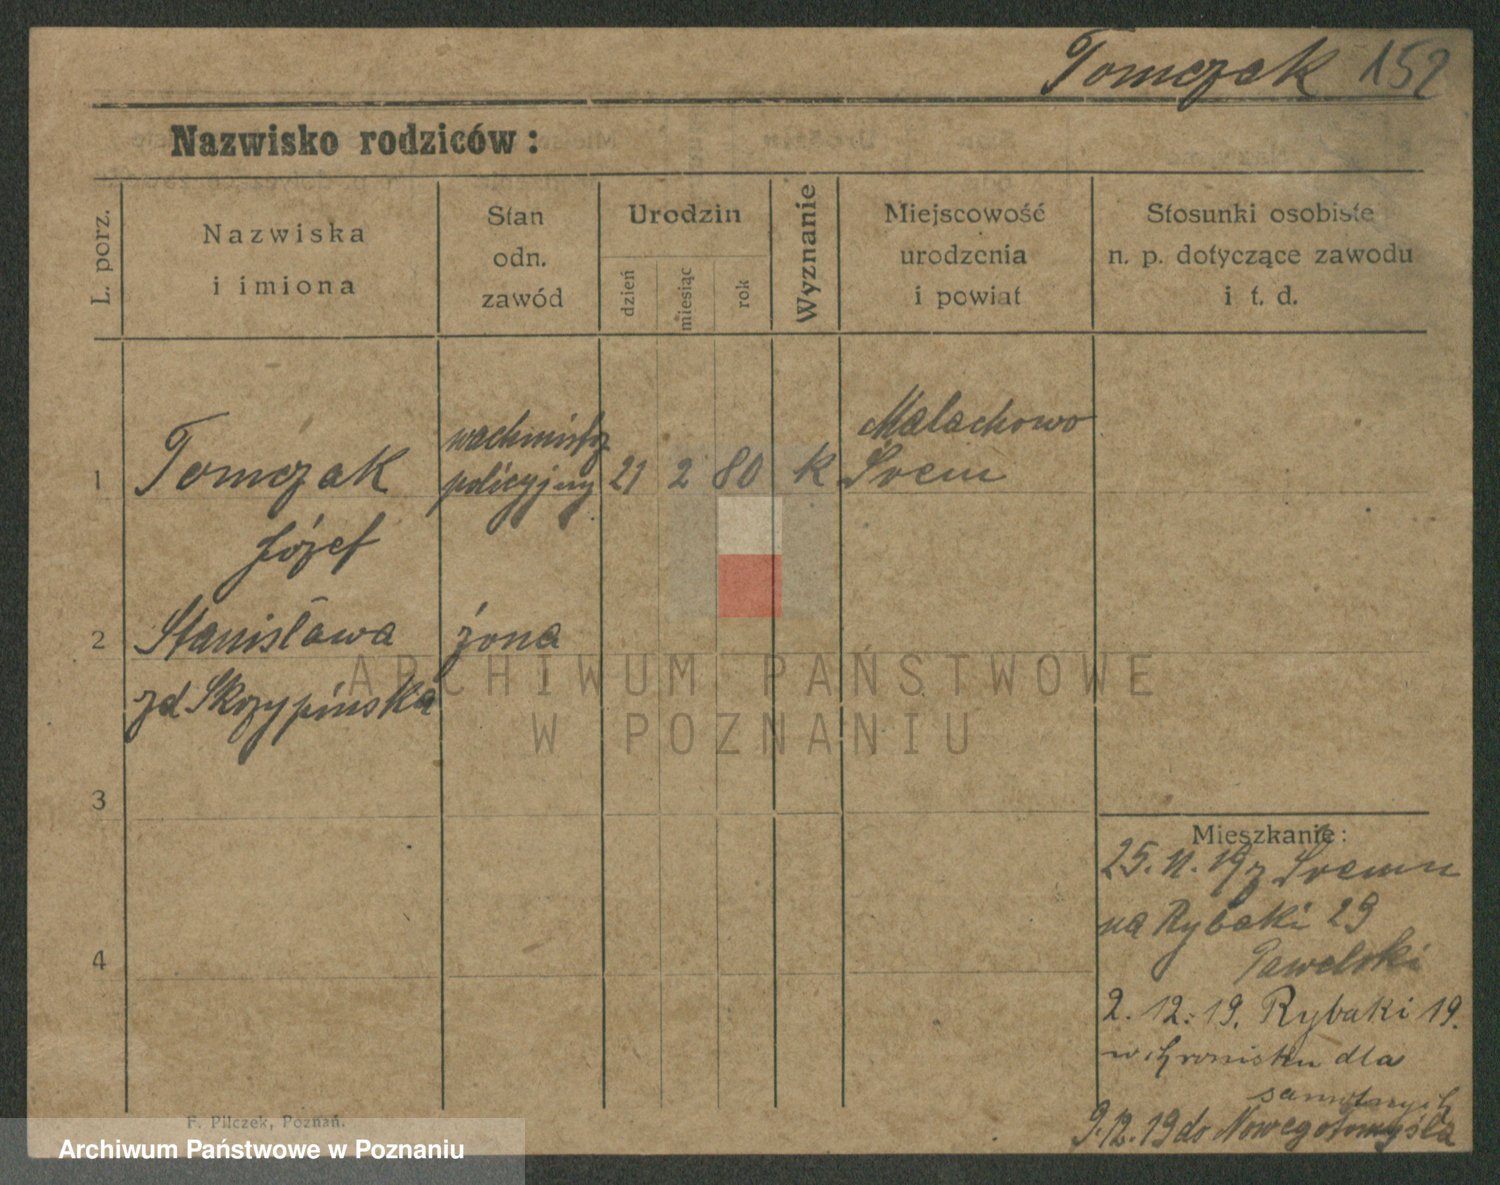 Tomczak 152
Nazwisko rodziców:
L. porz.
Nazwiska
i imiona
Stan
odn.
zawód
Urodzin
dzień
miesiąc
rok
Wyznanie
Miejscowość
urodzenia
i powiat
Stosunki osobiste
n. p. dotyczące zawodu
i t. d.
1 Tomczak
Józef
wachmistrz
policyjny
21 2 80 k
Małachowo
Śrem
2 Stanisława żona
zd Skrzypińska
3
4
Mieszkanie:
25. 11. 19 z Śremu
na Rybaki 29
Pawelski
2. 12. 19. Rybaki 19.
w schronisku dla
samotnych
9.12.19 do Nowegotomyśla
F. Pilczek, Poznań.
ARCHIWUM PAŃSTWOWE
W POZNANIU
Archiwum Państwowe w Poznaniu